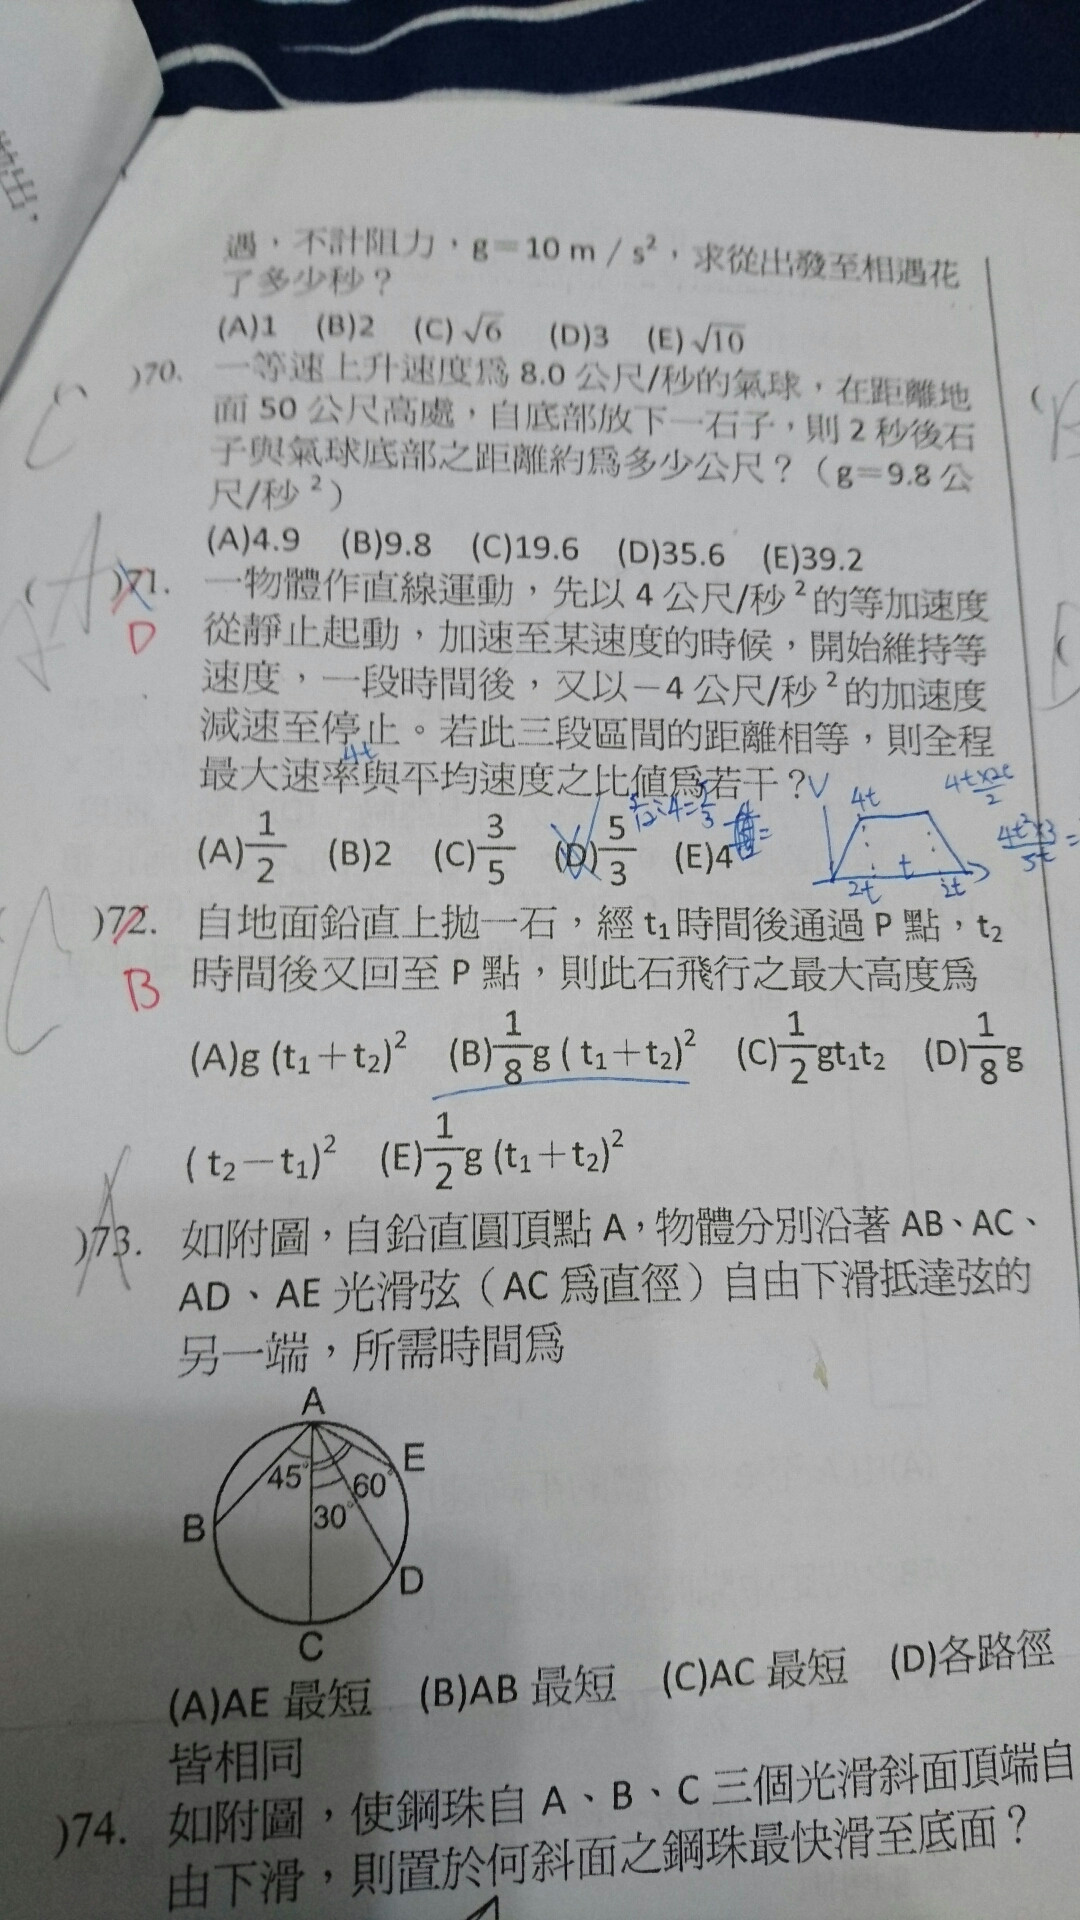 拋出，
遇，不計阻力，g＝10 m / s²，求從出發至相遇花
了多少秒？
(A)1 (B)2 (C)√6 (D)3 (E)√10
C )70. 一等速上升速度爲 8.0 公尺/秒的氣球，在距離地
面 50 公尺高處，自底部放下一石子，則 2 秒後石
子與氣球底部之距離約爲多少公尺？（g＝9.8 公
尺/秒 ²）
(A)4.9 (B)9.8 (C)19.6 (D)35.6 (E)39.2
A )71. 一物體作直線運動，先以 4 公尺/秒 ² 的等加速度
D
從靜止起動，加速至某速度的時候，開始維持等
速度，一段時間後，又以－4 公尺/秒 ² 的加速度
減速至停止。若此三段區間的距離相等，則全程
4t
最大速率與平均速度之比值爲若干？
V 4t 4t×2t/2
(A)1/2 (B)2 (C)3/5 (D)5/3 (E)4
2t t 2t
4t²×3/5t =
)72. 自地面鉛直上拋一石，經 t₁ 時間後通過 P 點，t₂
B
時間後又回至 P 點，則此石飛行之最大高度爲
(A)g (t₁＋t₂)² (B)1/8 g ( t₁＋t₂)² (C)1/2 gt₁t₂ (D)1/8 g
( t₂－t₁)² (E)1/2 g (t₁＋t₂)²
A )73. 如附圖，自鉛直圓頂點 A，物體分別沿著 AB、AC、
AD、AE 光滑弦（AC 爲直徑）自由下滑抵達弦的
另一端，所需時間爲
A
E
45° 60°
30°
B
D
C
(A)AE 最短 (B)AB 最短 (C)AC 最短 (D)各路徑
皆相同
)74. 如附圖，使鋼珠自 A、B、C 三個光滑斜面頂端自
由下滑，則置於何斜面之鋼珠最快滑至底面？